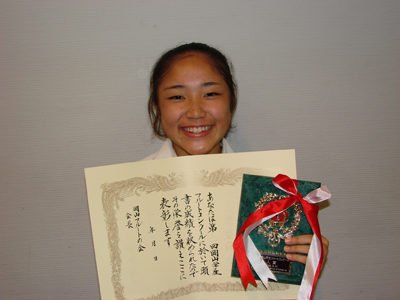 あなたは第　回岡山学生
フルートコンクールに於いて頭
書の成績を収められたので
その栄誉を讃えここに
表彰します
年　月　日
岡山フルートの会
会長